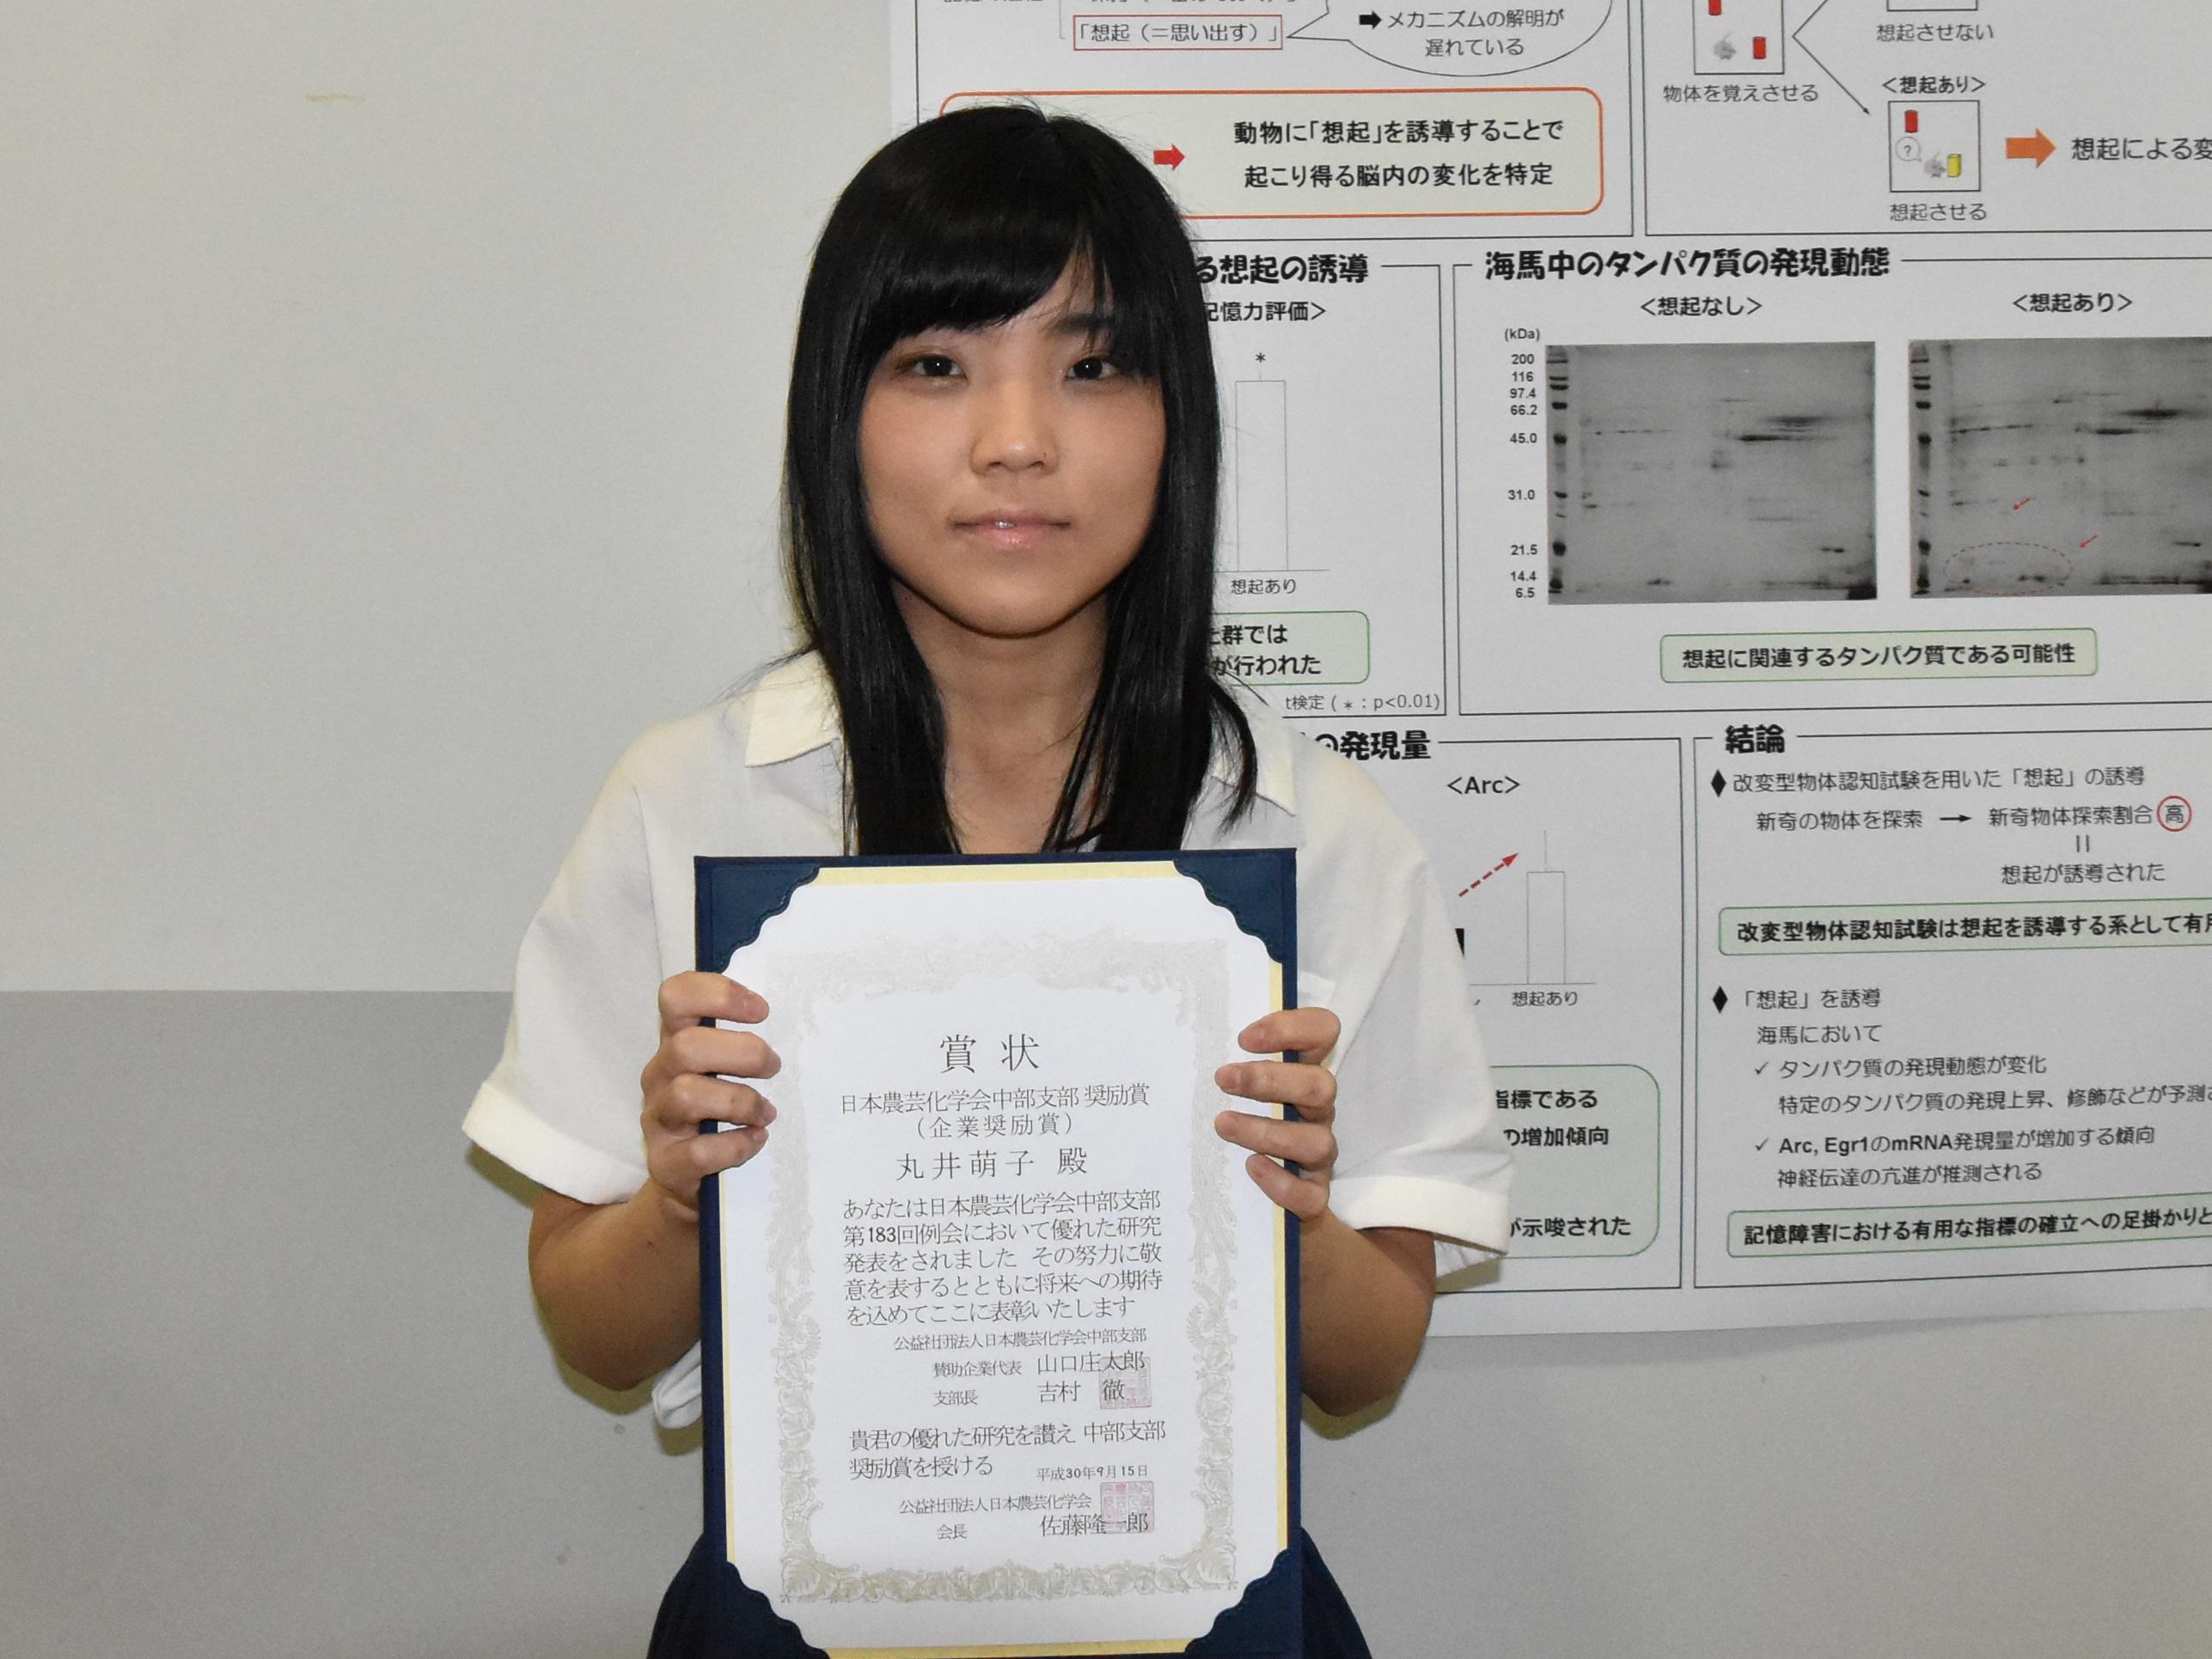 「想起（＝思い出す）」
➡ メカニズムの解明が
遅れている
動物に「想起」を誘導することで
起こり得る脳内の変化を特定
想起させない
物体を覚えさせる
<想起あり>
?
想起による変
想起させる
る想起の誘導
記憶力評価>
*
想起あり
た群では
が行われた
t検定 ( * : p<0.01)
海馬中のタンパク質の発現動態
<想起なし>
<想起あり>
(kDa)
200
116
97.4
66.2
45.0
31.0
21.5
14.4
6.5
想起に関連するタンパク質である可能性
の発現量
<Arc>
想起あり
指標である
の増加傾向
が示唆された
結論
◆改変型物体認知試験を用いた「想起」の誘導
新奇の物体を探索 → 新奇物体探索割合 高
想起が誘導された
改変型物体認知試験は想起を誘導する系として有用
◆「想起」を誘導
海馬において
✓ タンパク質の発現動態が変化
特定のタンパク質の発現上昇、修飾などが予測さ
✓ Arc, Egr1のmRNA発現量が増加する傾向
神経伝達の亢進が推測される
記憶障害における有用な指標の確立への足掛かりと
賞状
日本農芸化学会中部支部 奨励賞
（企業奨励賞）
丸井萌子 殿
あなたは日本農芸化学会中部支部
第183回例会において優れた研究
発表をされました その努力に敬
意を表するとともに将来への期待
を込めてここに表彰いたします
公益社団法人日本農芸化学会中部支部
賛助企業代表 山口庄太郎
支部長 吉村 徹
貴君の優れた研究を讃え 中部支部
奨励賞を授ける 平成30年9月15日
公益社団法人日本農芸化学会
会長 佐藤隆一郎